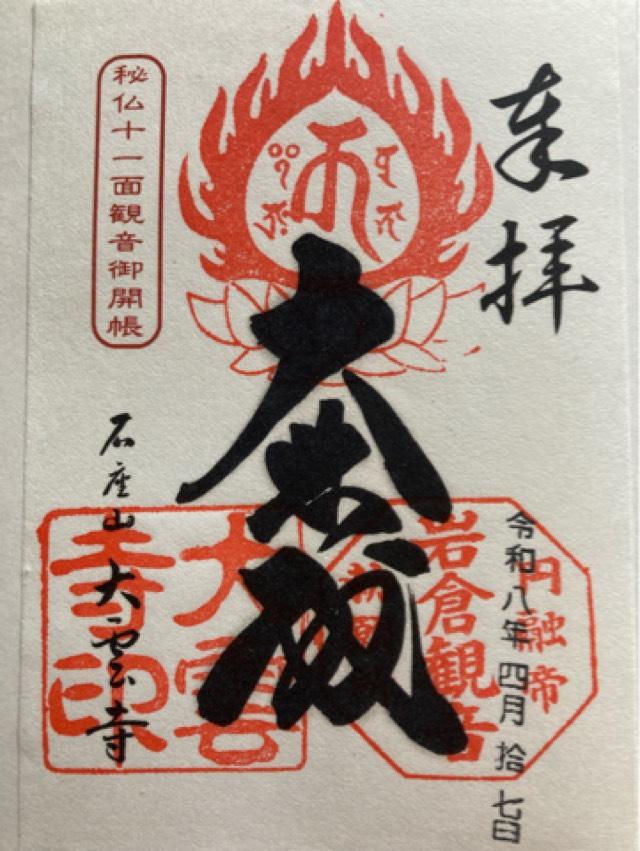 奉拝
令和八年四月拾七日
円融帝
岩倉観音
大雲
寺印
石座山 大雲寺
秘仏十一面観音御開帳